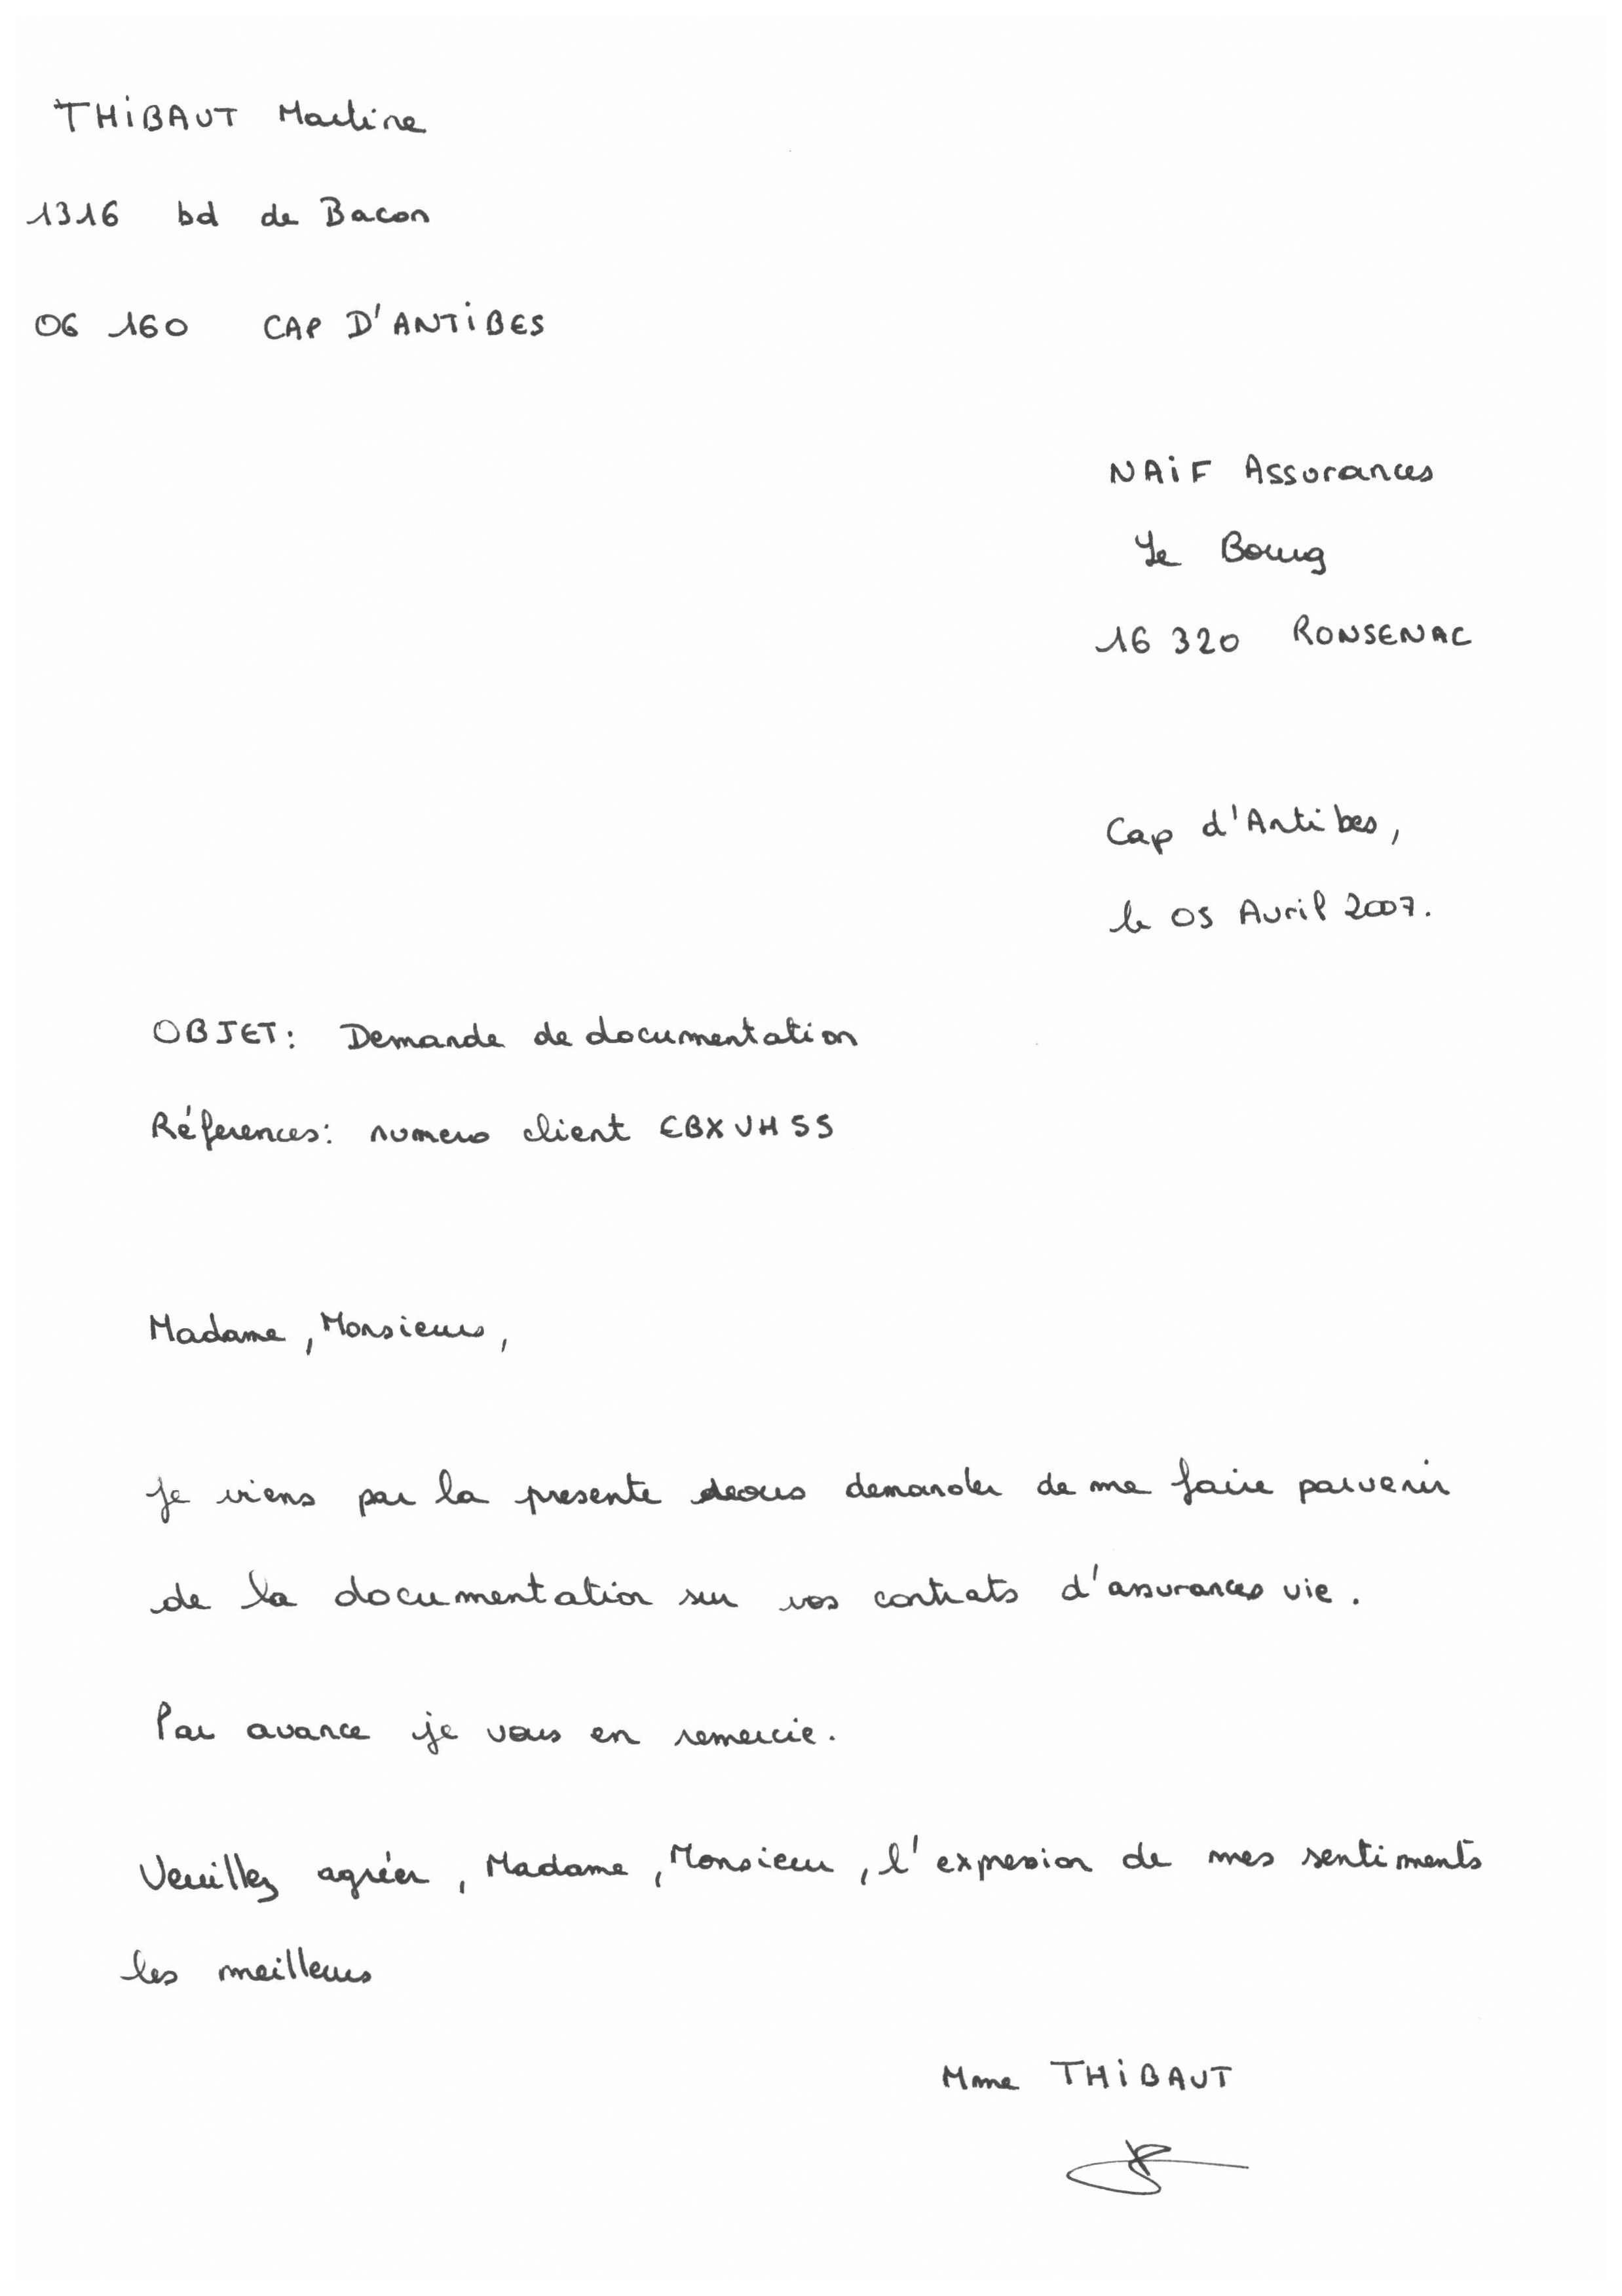 THIBAUT Martine
1316 bd de Bacon
06 160 CAP D'ANTIBES
NAIF Assurances
Le Bourg
16 320 RONSENAC
Cap d'Antibes,
le 05 Avril 2007.
OBJET: Demande de documentation
Réferences: numero client EBXVH55
Madame, Monsieurs,
je viens par la presente vous demander de me faire parvenir
de la documentation sur vos contrats d'assurances vie.
Par avance je vous en remercie.
Veuillez agréer, Madame, Monsieur, l'expression de mes sentiments
les meilleurs
Mme THIBAUT